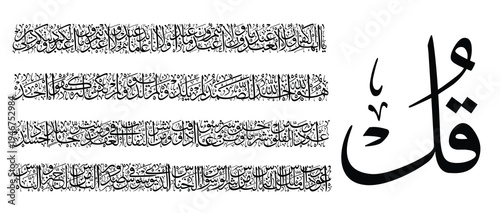 قل
يا أيها الكافرون لا أعبد ما تعبدون ولا أنتم عابدون ما أعبد ولا أنا عابد ما عبدتم ولا أنتم عابدون ما أعبد لكم دينكم ولي دين
هو الله أحد الله الصمد لم يلد ولم يولد ولم يكن له كفوا أحد
أعوذ برب الفلق من شر ما خلق ومن شر غاسق إذا وقب ومن شر النفاثات في العقد ومن شر حاسد إذا حسد
أعوذ برب الناس ملك الناس إله الناس من شر الوسواس الخناس الذي يوسوس في صدور الناس من الجنة والناس